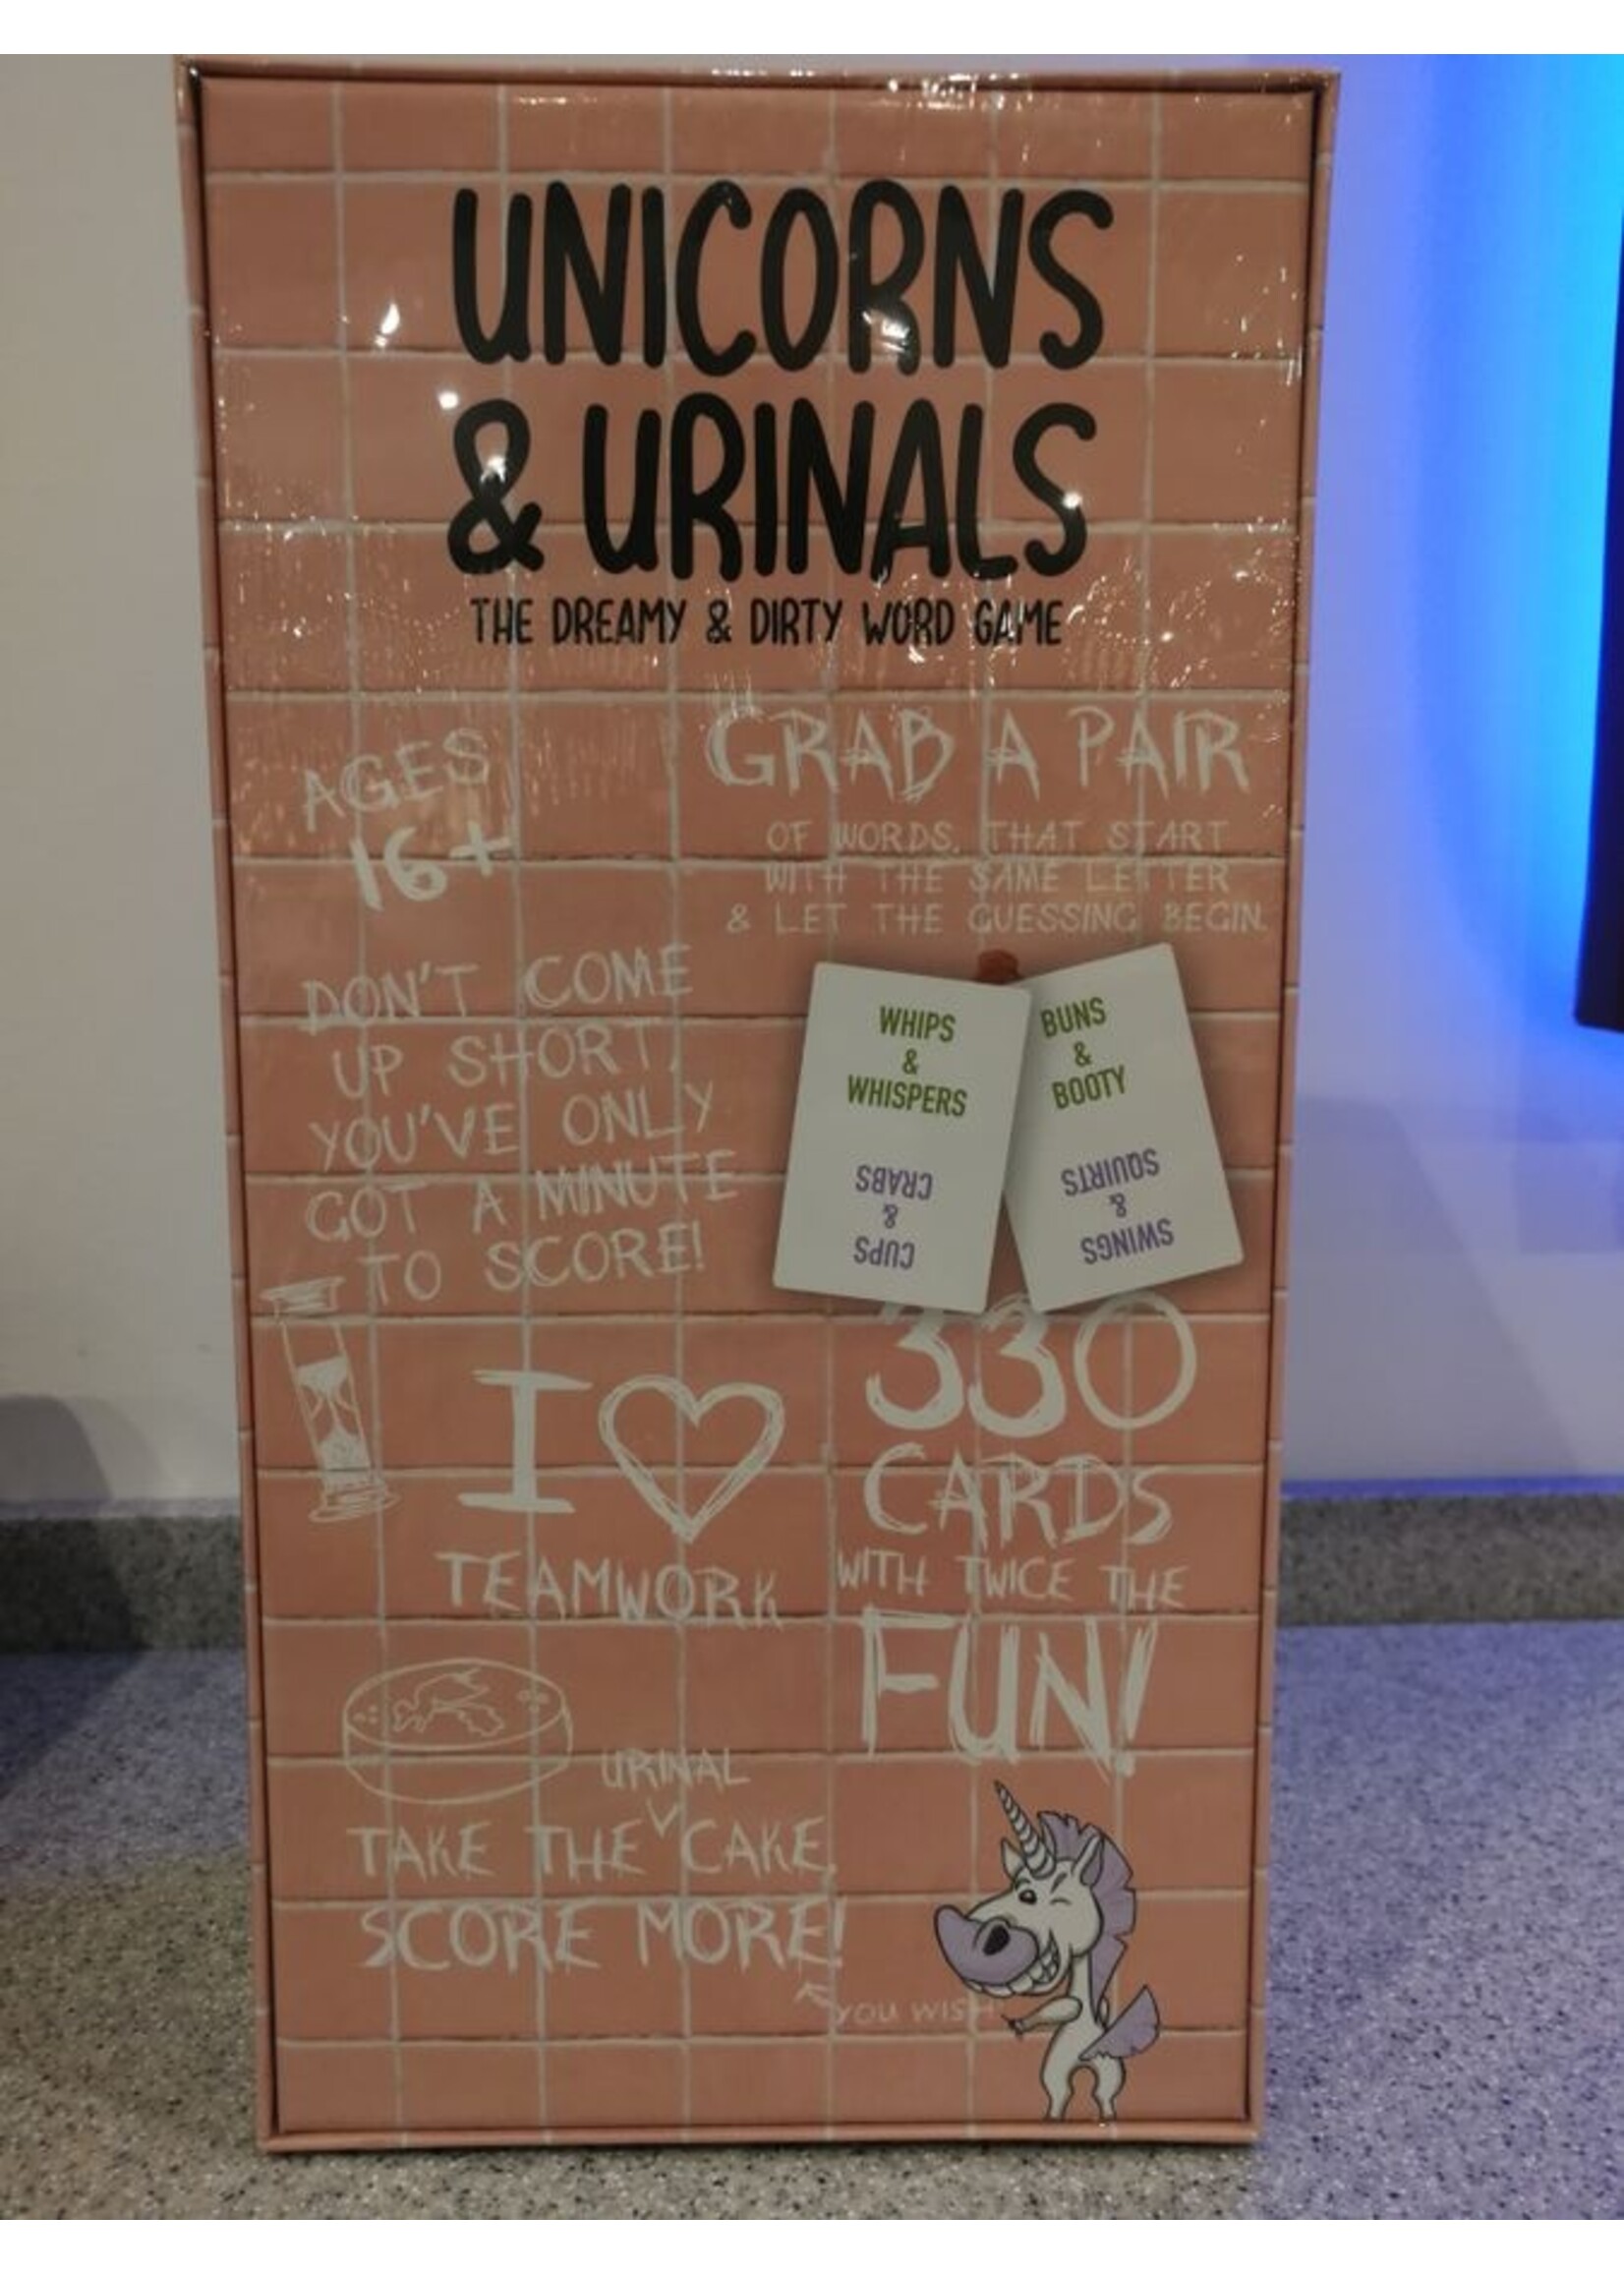 UNICORNS
& URINALS
THE DREAMY & DIRTY WORD GAME
AGES
16+
GRAB A PAIR
OF WORDS, THAT START
WITH THE SAME LETTER
& LET THE GUESSING BEGIN.
DON'T COME
UP SHORT,
YOU'VE ONLY
GOT A MINUTE
TO SCORE!
WHIPS
&
WHISPERS
CUPS
&
CRABS
BUNS
&
BOOTY
SWINGS
&
SQUIRTS
I ♡
TEAMWORK
330
CARDS
WITH TWICE THE
FUN!
URINAL
TAKE THE CAKE,
SCORE MORE!
YOU WISH